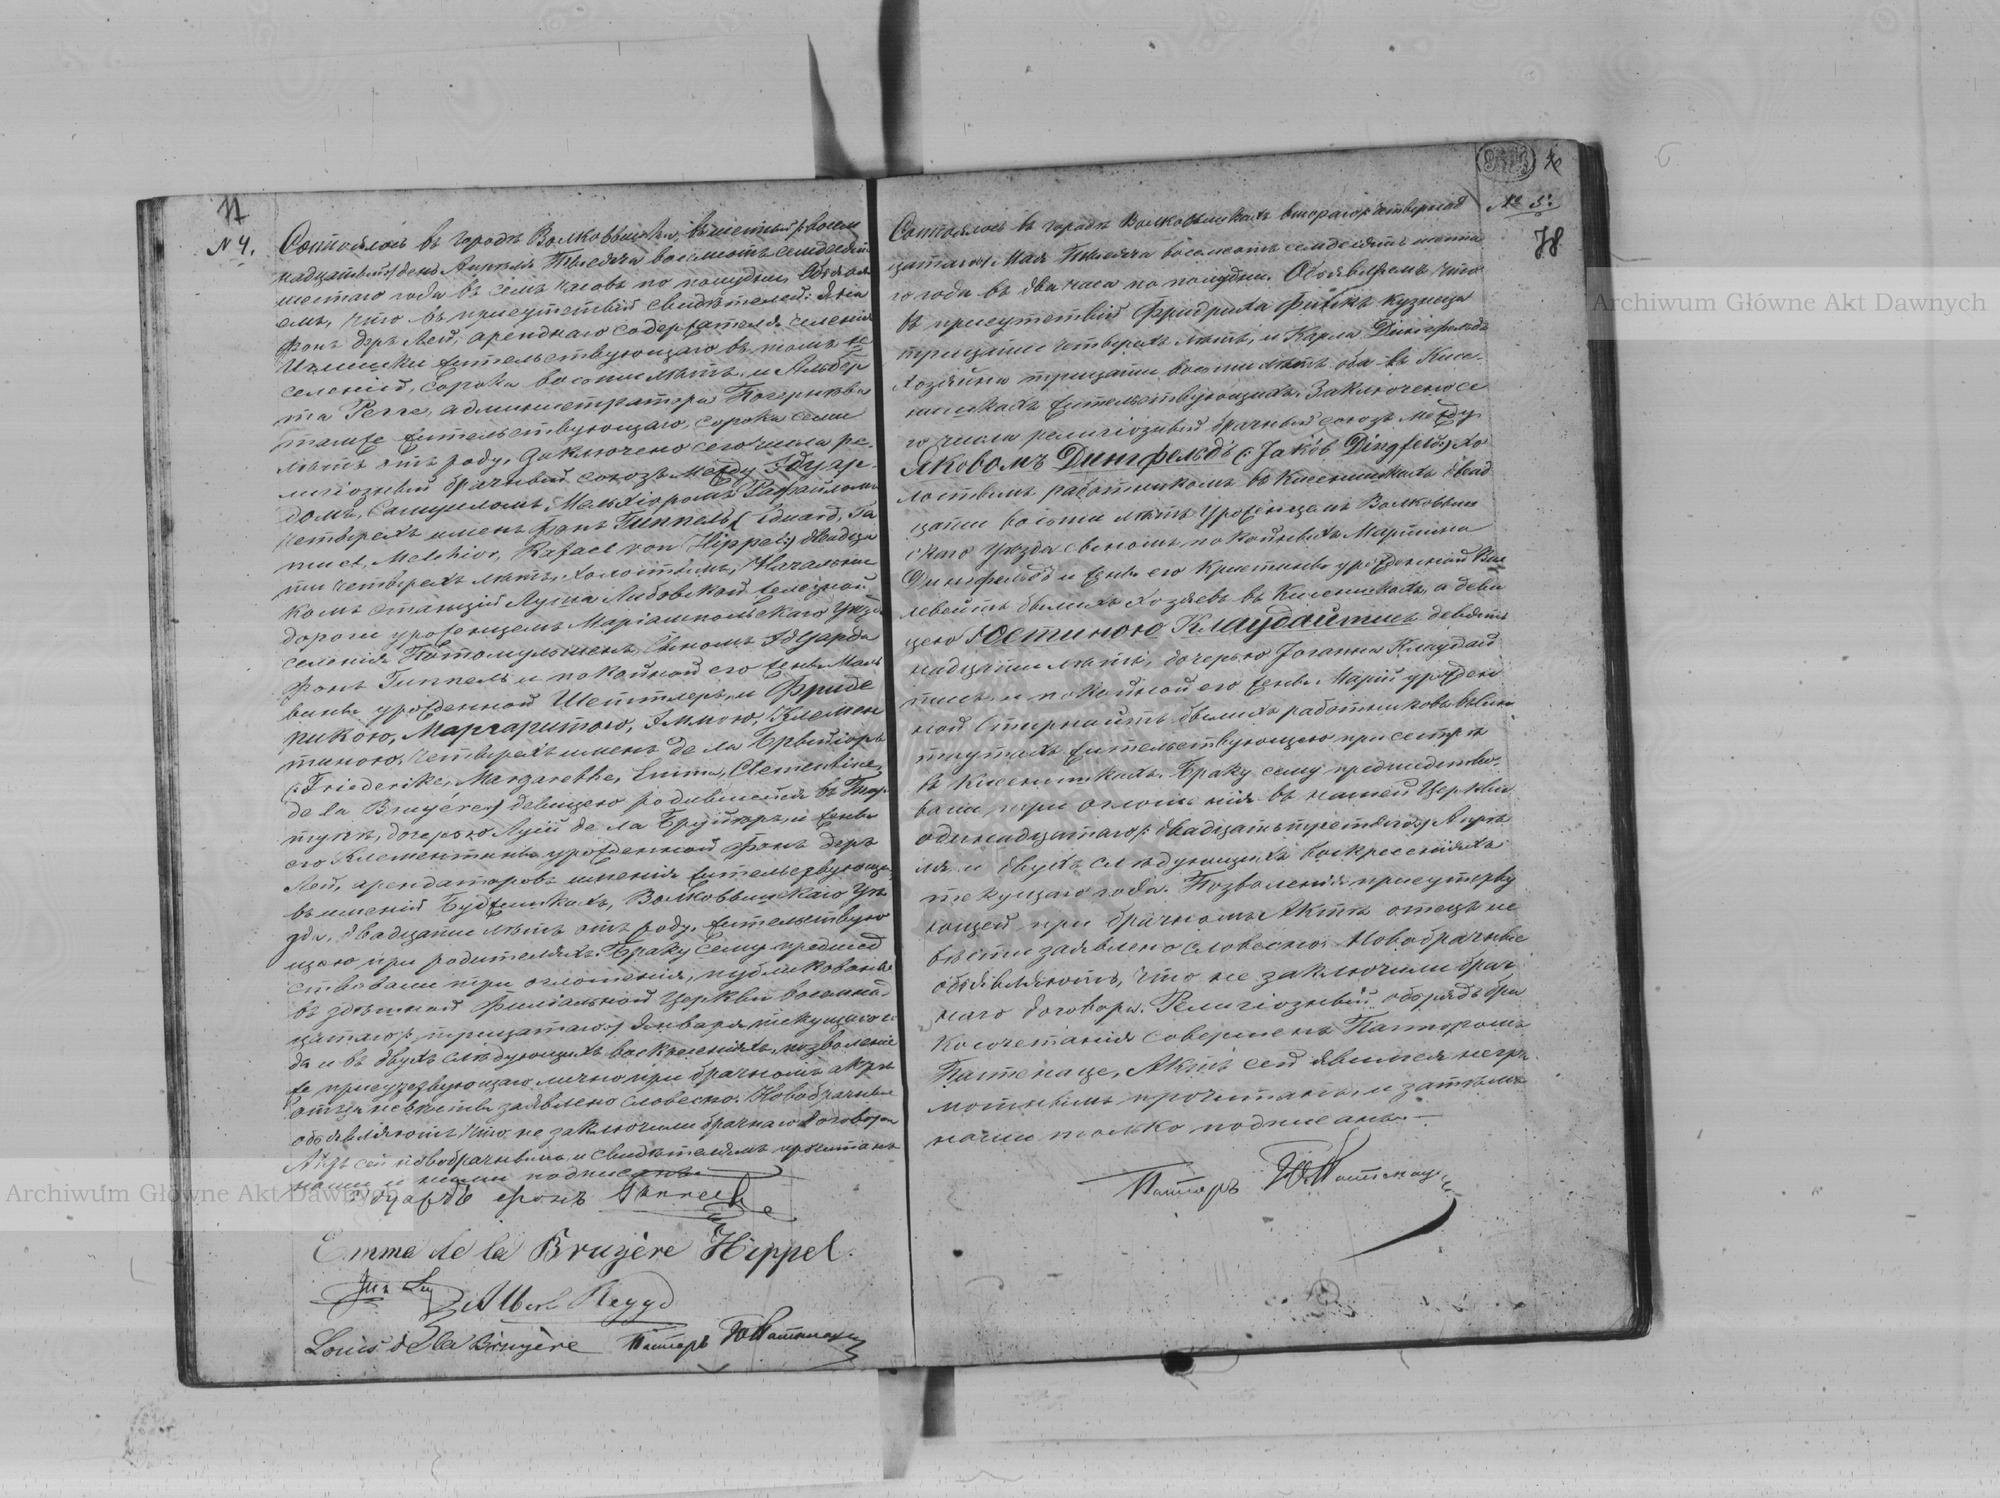 77
№ 4.
Состоялось въ городѣ Волковышкахъ, въ шестый /:восем
надцатый:/ день Апрѣля Тысяча восемьсотъ семдесятъ
шестаго года въ семь часовъ по полудни. Объявля
емъ, что въ присутствіи свидѣтелей:
фонъ деръ Лей, аренднаго содержателя селенія
жительствующаго въ томъ же
селеніи, сорока восьми лѣтъ, и Альбер
та Регге, администратора
также жительствующаго, сорока семи
лѣтъ отъ роду, заключено сего числа ре
лигіозный брачный союзъ между Эдуар
домъ, Самуиломъ, Мельхіоромъ, Рафаиломъ
четверехъ именъ фонъ Гиппель (Eduard, Sa
muel, Melchior, Rafael von Hippel:) двадца
ти четверехъ лѣтъ, холостымъ, Начални
комъ станціи Луша Либавской желѣзной
дороги уроженцемъ Маріампольскаго Уѣзда
селенія сыномъ Эдуарда
фонъ Гиппель и покойной его жены Маль
вины урожденной Шеттлеръ, и Фриде
рикою, Маргаритою, Эммою, Клемен
тиною, четверехъ именъ де ла Брюйеръ
(:Friederike, Margarethe, Emma, Clementine,
de la Bruyere:) девицею родившеюся въ
дочерью Луи де ла Брюйеръ, и жены
его Клементины урожденной фонъ деръ
Лей, арендаторовъ имѣнія жительствующихъ
въ имѣніи Будвишкахъ, Волковышскаго Уѣ
зда, двадцати лѣтъ отъ роду, жительствую
щею при родителяхъ. Браку сему предшед
ствовали три оглашенія, публикованныя
въ здѣшной Филіальной Церкви восемнад
цатаго /:тридцатаго:/ Января текущаго го
да и въ двухъ слѣдующихъ воскресеніяхъ, позволеніе
же присутствующаго лично при брачномъ актѣ
отца невѣсты заявлено словесно. Новобрачные
объявляютъ что не заключили брачнаго договора
Актъ сей новобрачнымъ и свидѣтелямъ прочитанъ
нами и ними подписанъ
Эдуардъ фонъ Гиппель
Emma de la Bruyère Hippel.
Albert Regge
Louis de la Bruyère Пасторъ
№ 5.
78
Состоялось въ городѣ Волковышкахъ втораго /:четырнад
цатаго:/ Мая Тысяча восемьсотъ семдесятъ шеста
го года въ два часа по полудни. Объявляемъ, что
въ присутствіи Фридриха кузнеца
тридцати четверехъ лѣтъ, и Карла Дингфельдъ
хозяина тридцати восьми лѣтъ оба въ Кисе
нишкахъ жительствующихъ. Заключено се
го числа религіозный брачный союзъ между
Яковомъ Дингфельдъ (:Jakób Dingfeld:) хо
лостымъ работникомъ въ Кисенишкахъ двад
цати восьми лѣтъ уроженцемъ Волковыш
скаго Уѣзда сыномъ покойныхъ Мартина
Дингфельдъ и жены его Кристины урожденной
бывшихъ хозяевъ въ Кисенишкахъ, а деви
цею Юстиною Клаудайтисъ девят
надцати лѣтъ, дочерью Іоганна Клаудай
тисъ и покойной его жены Маріи урожден
ной бывшихъ работниковъ
жительствующею при сестрѣ
въ Кисенишкахъ. Браку сему предшедство
вали три оглашенія въ нашей Церкви
одинадцатаго /:двадцать третьяго:/ Апрѣ
ля и двухъ слѣдующихъ воскресеніяхъ
текущаго года. Позволенія присутству
ющей при брачномъ Актѣ отецъ не
вѣсты заявлено словесно. Новобрачные
объявляютъ, что не заключили брач
наго договора. Религіозный обрядъ бра
косочетанія совершенъ Пасторомъ
Актъ сей явимся негра
мотнымъ прочитанъ, и затѣмъ
нами только подписанъ.—
Пасторъ
Archiwum Główne Akt Dawnych
Archiwum Główne Akt Dawnych